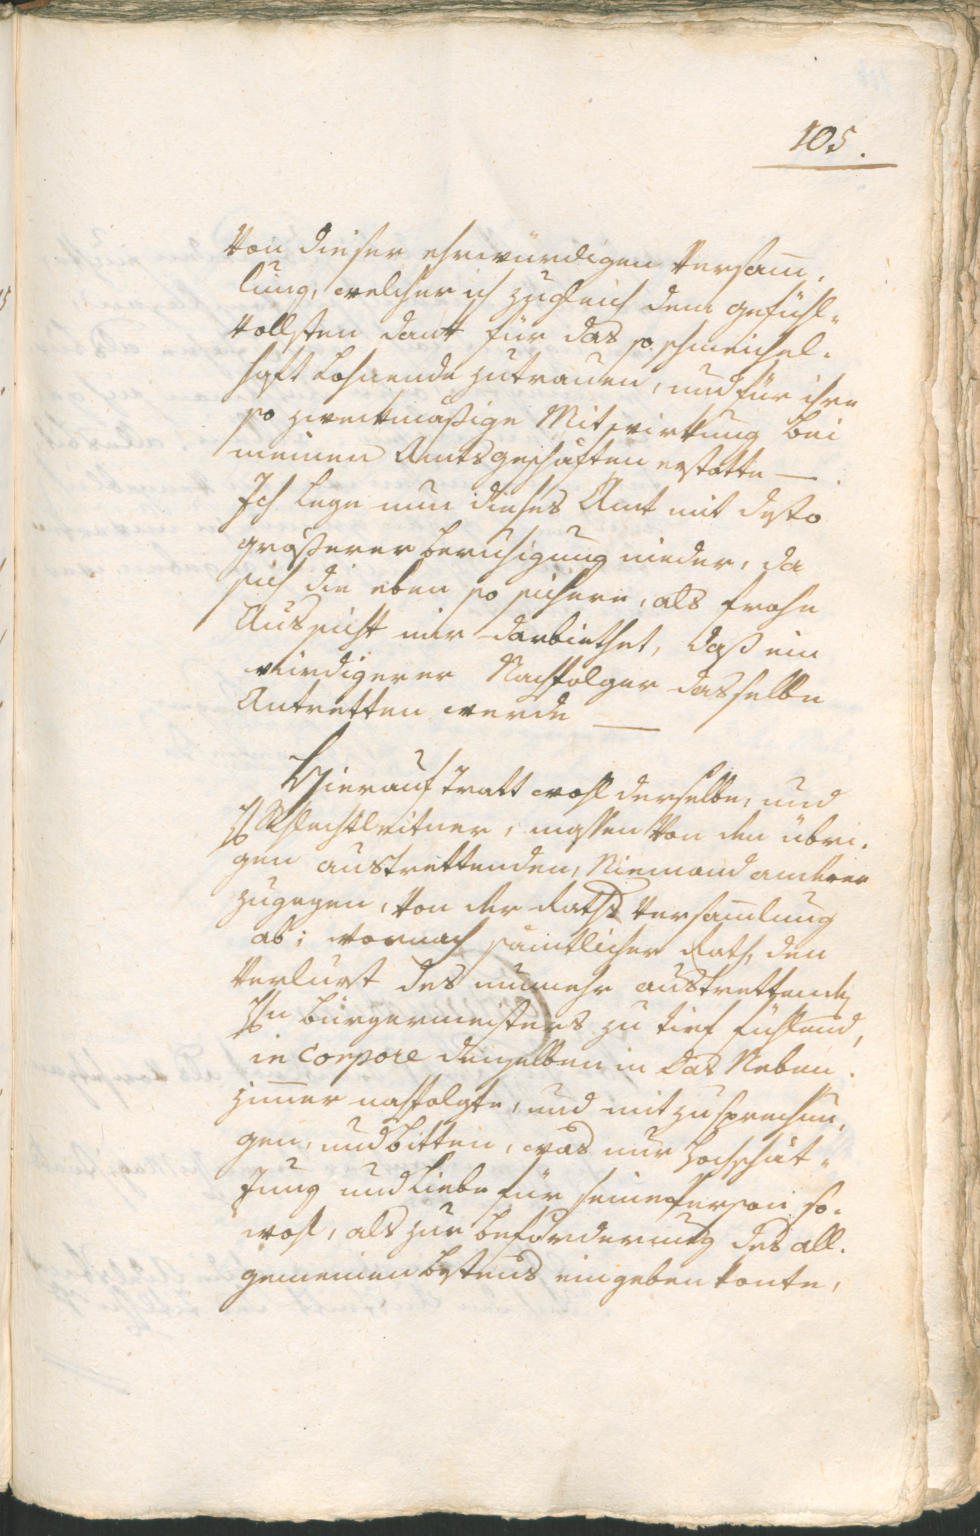 105.
Von dieser ehrwürdigen Versam̅-
lung, welcher ich zugleich dem gefühl-
vollsten Dank für das so schmeichel-
haft Lohnende zutrauen, und für ihre
so zwekmäßige Mitwirkung bei
meinen Amtsgeschäften erstatte —
Ich lege nun dieses Amt mit desto
größerer beruhigung nieder, da
sich die eben so sichere, als frohe
Aussicht mir darbiethet, daß ein
würdigerer Nachfolger dasselbe
Antretten werde —
Hierauf tratt wohl derselbe, und
H Schlechtleitner, massen von den übri-
gen austrettenden, Niemand anderer
zugegen, von der Raths Versam̅lung
ab; wornach säm̅tlicher Rath, den
Verlurst des nunmehr austrettenden
Hn Bürgermeisters zu tief fühlend,
in Corpore denselben in das Neben-
zim̅er nachfolgte, und mit zusprechun-
gen, und bitten, was nur Hochschät-
zung und Liebe für seine Person so-
wohl, als zur beförderung des all-
gemeinen bestens eingeben konte,